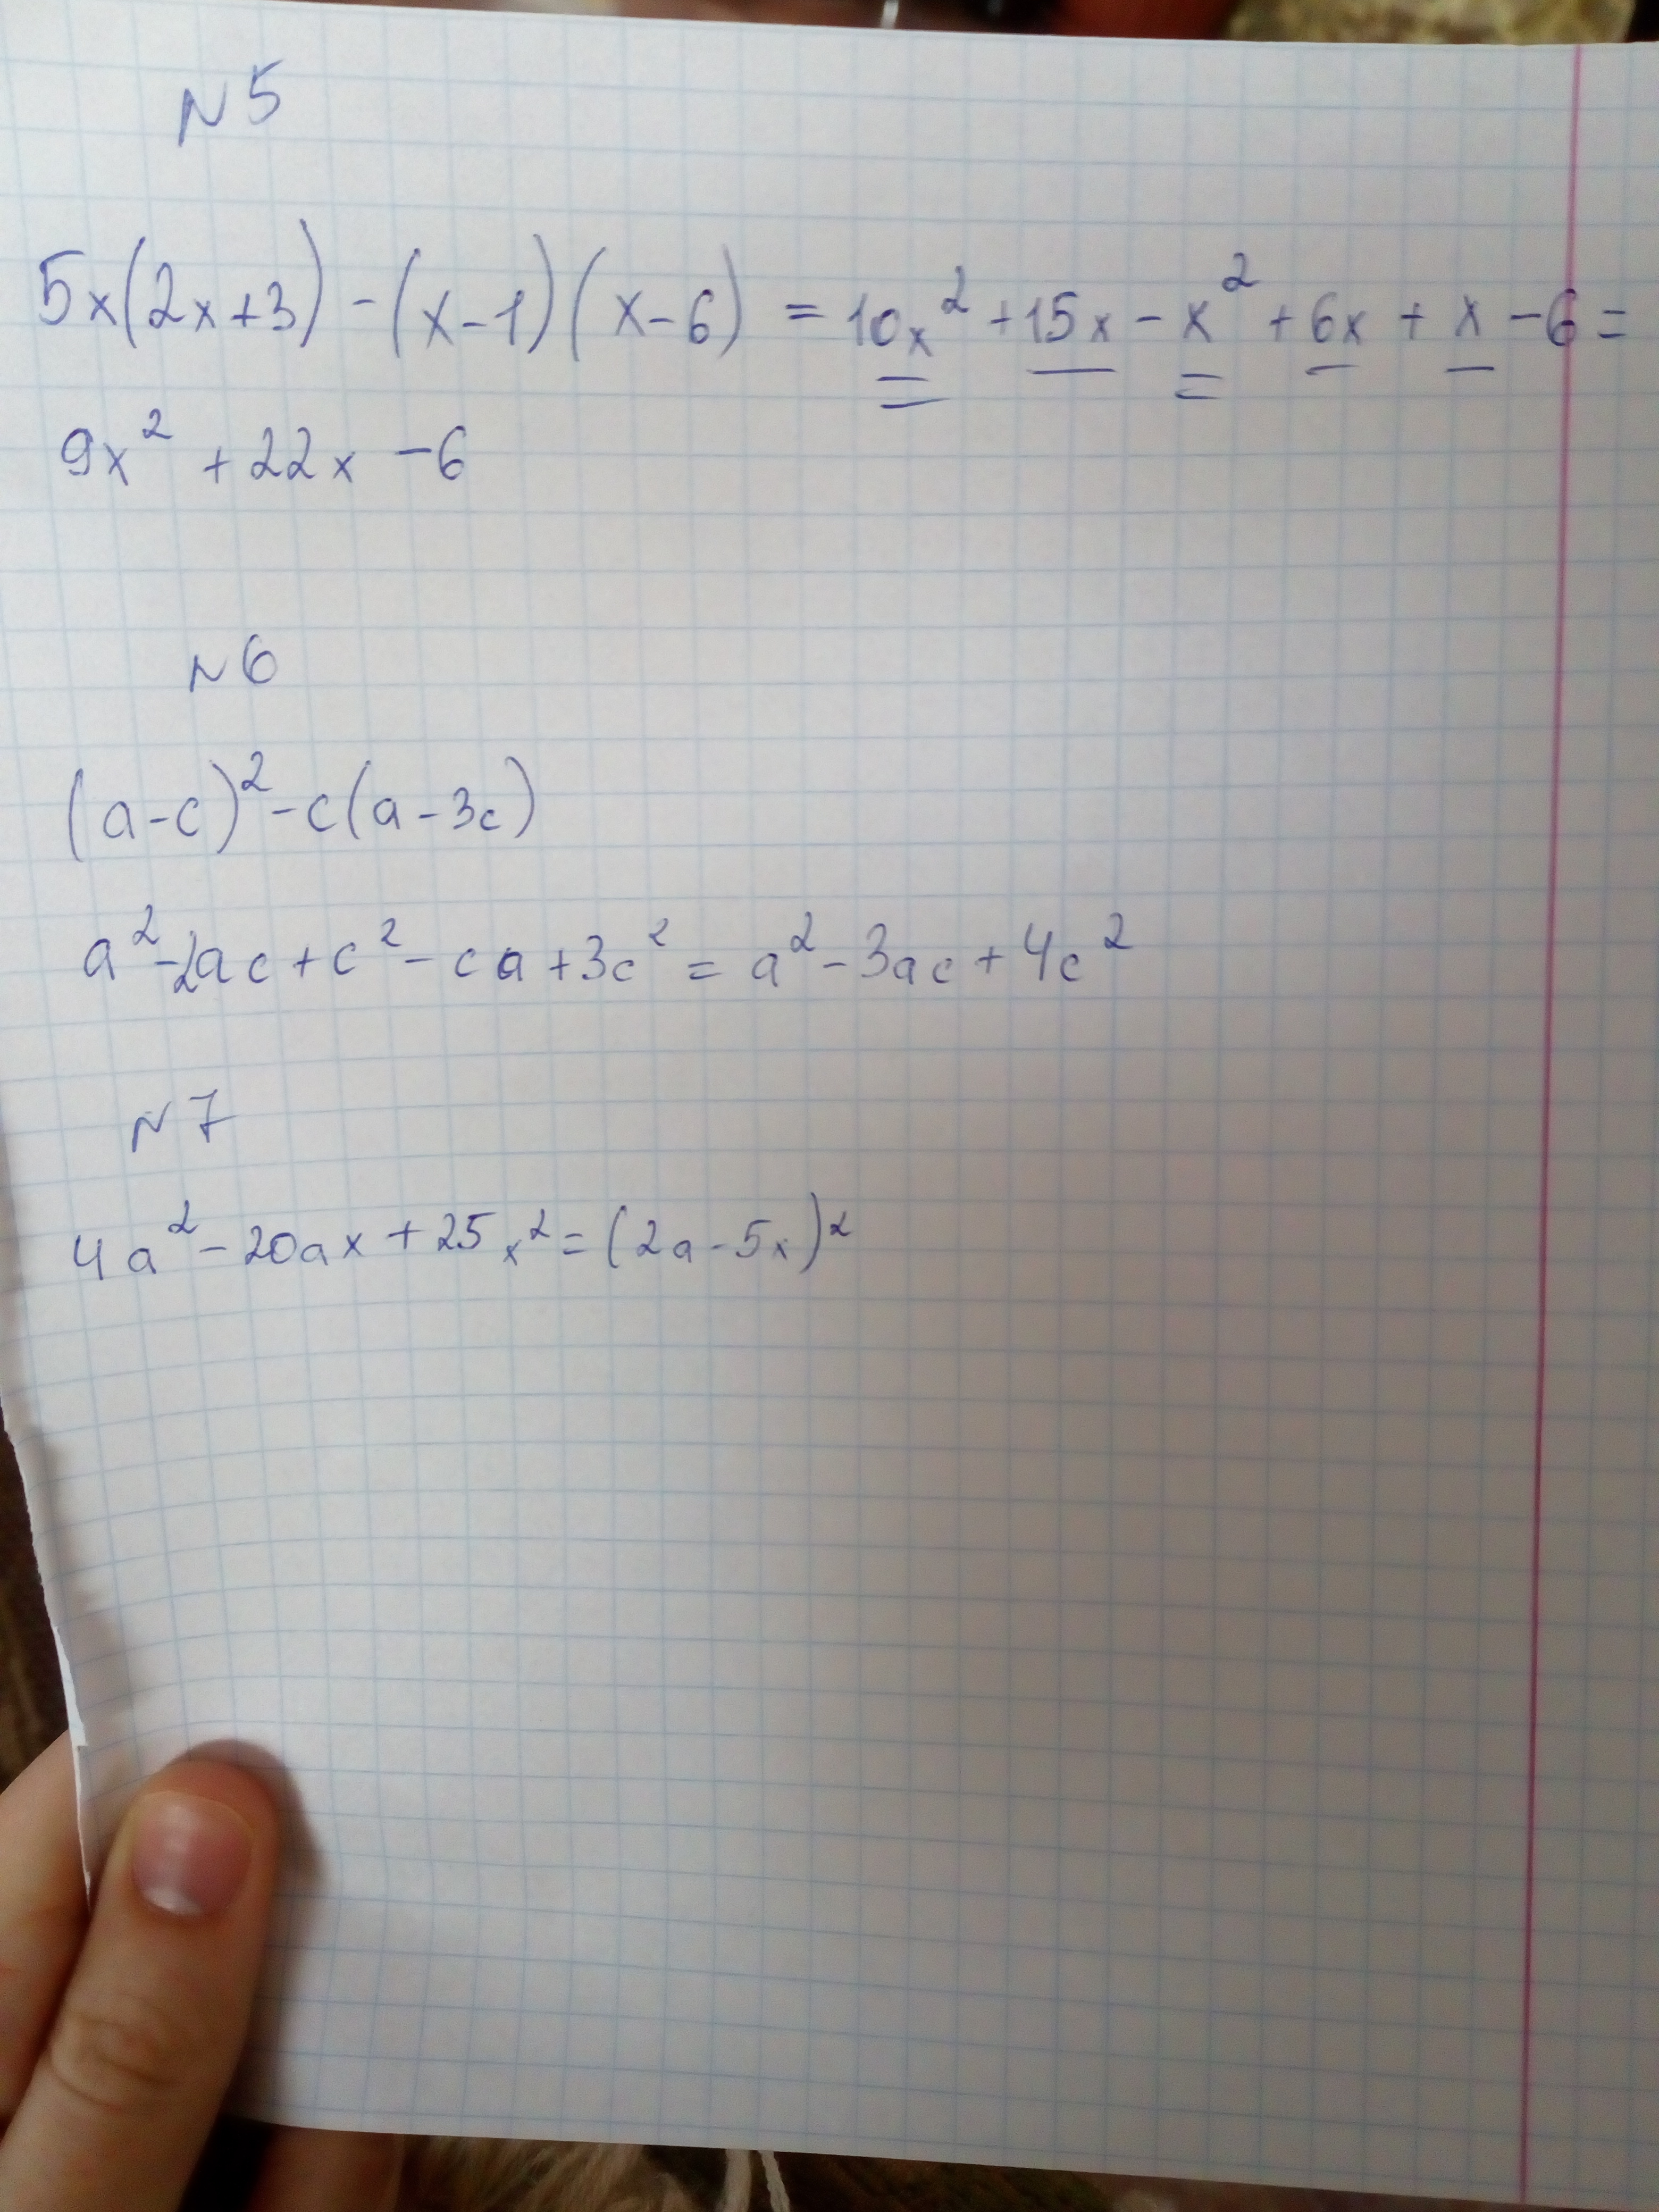 N5
5x(2x+3)-(x-1)(x-6) = 10x²+15x-x²+6x+x-6=
9x²+22x-6
N6
(a-c)²-c(a-3c)
a²-2ac+c²-ca+3c²=a²-3ac+4c²
N7
4a²-20ax+25x²=(2a-5x)²